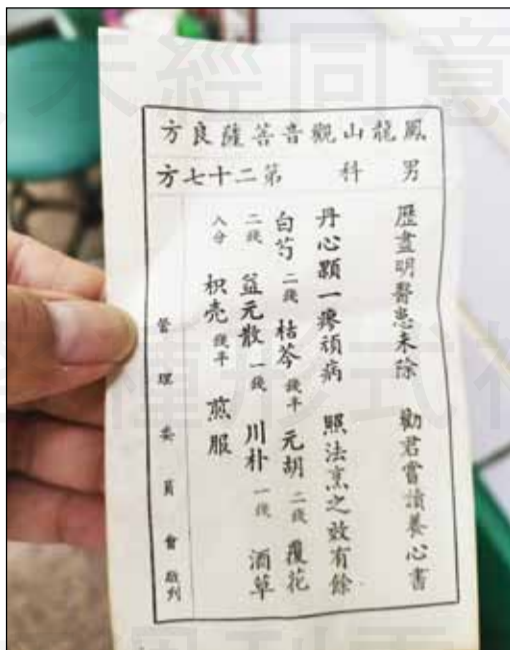 鳳龍山觀音菩薩良方
男科 第二十七方
歷盡明醫患未除 勸君當讀養心書
丹心顆一療頑病 照法烹之效有餘
白芍 二錢 枯芩 錢半 元胡 二錢 覆花
二錢 益元散 一錢 川朴 一錢 酒草
八分 枳壳 錢半 煎服
管理委員會敬刊
未經同意